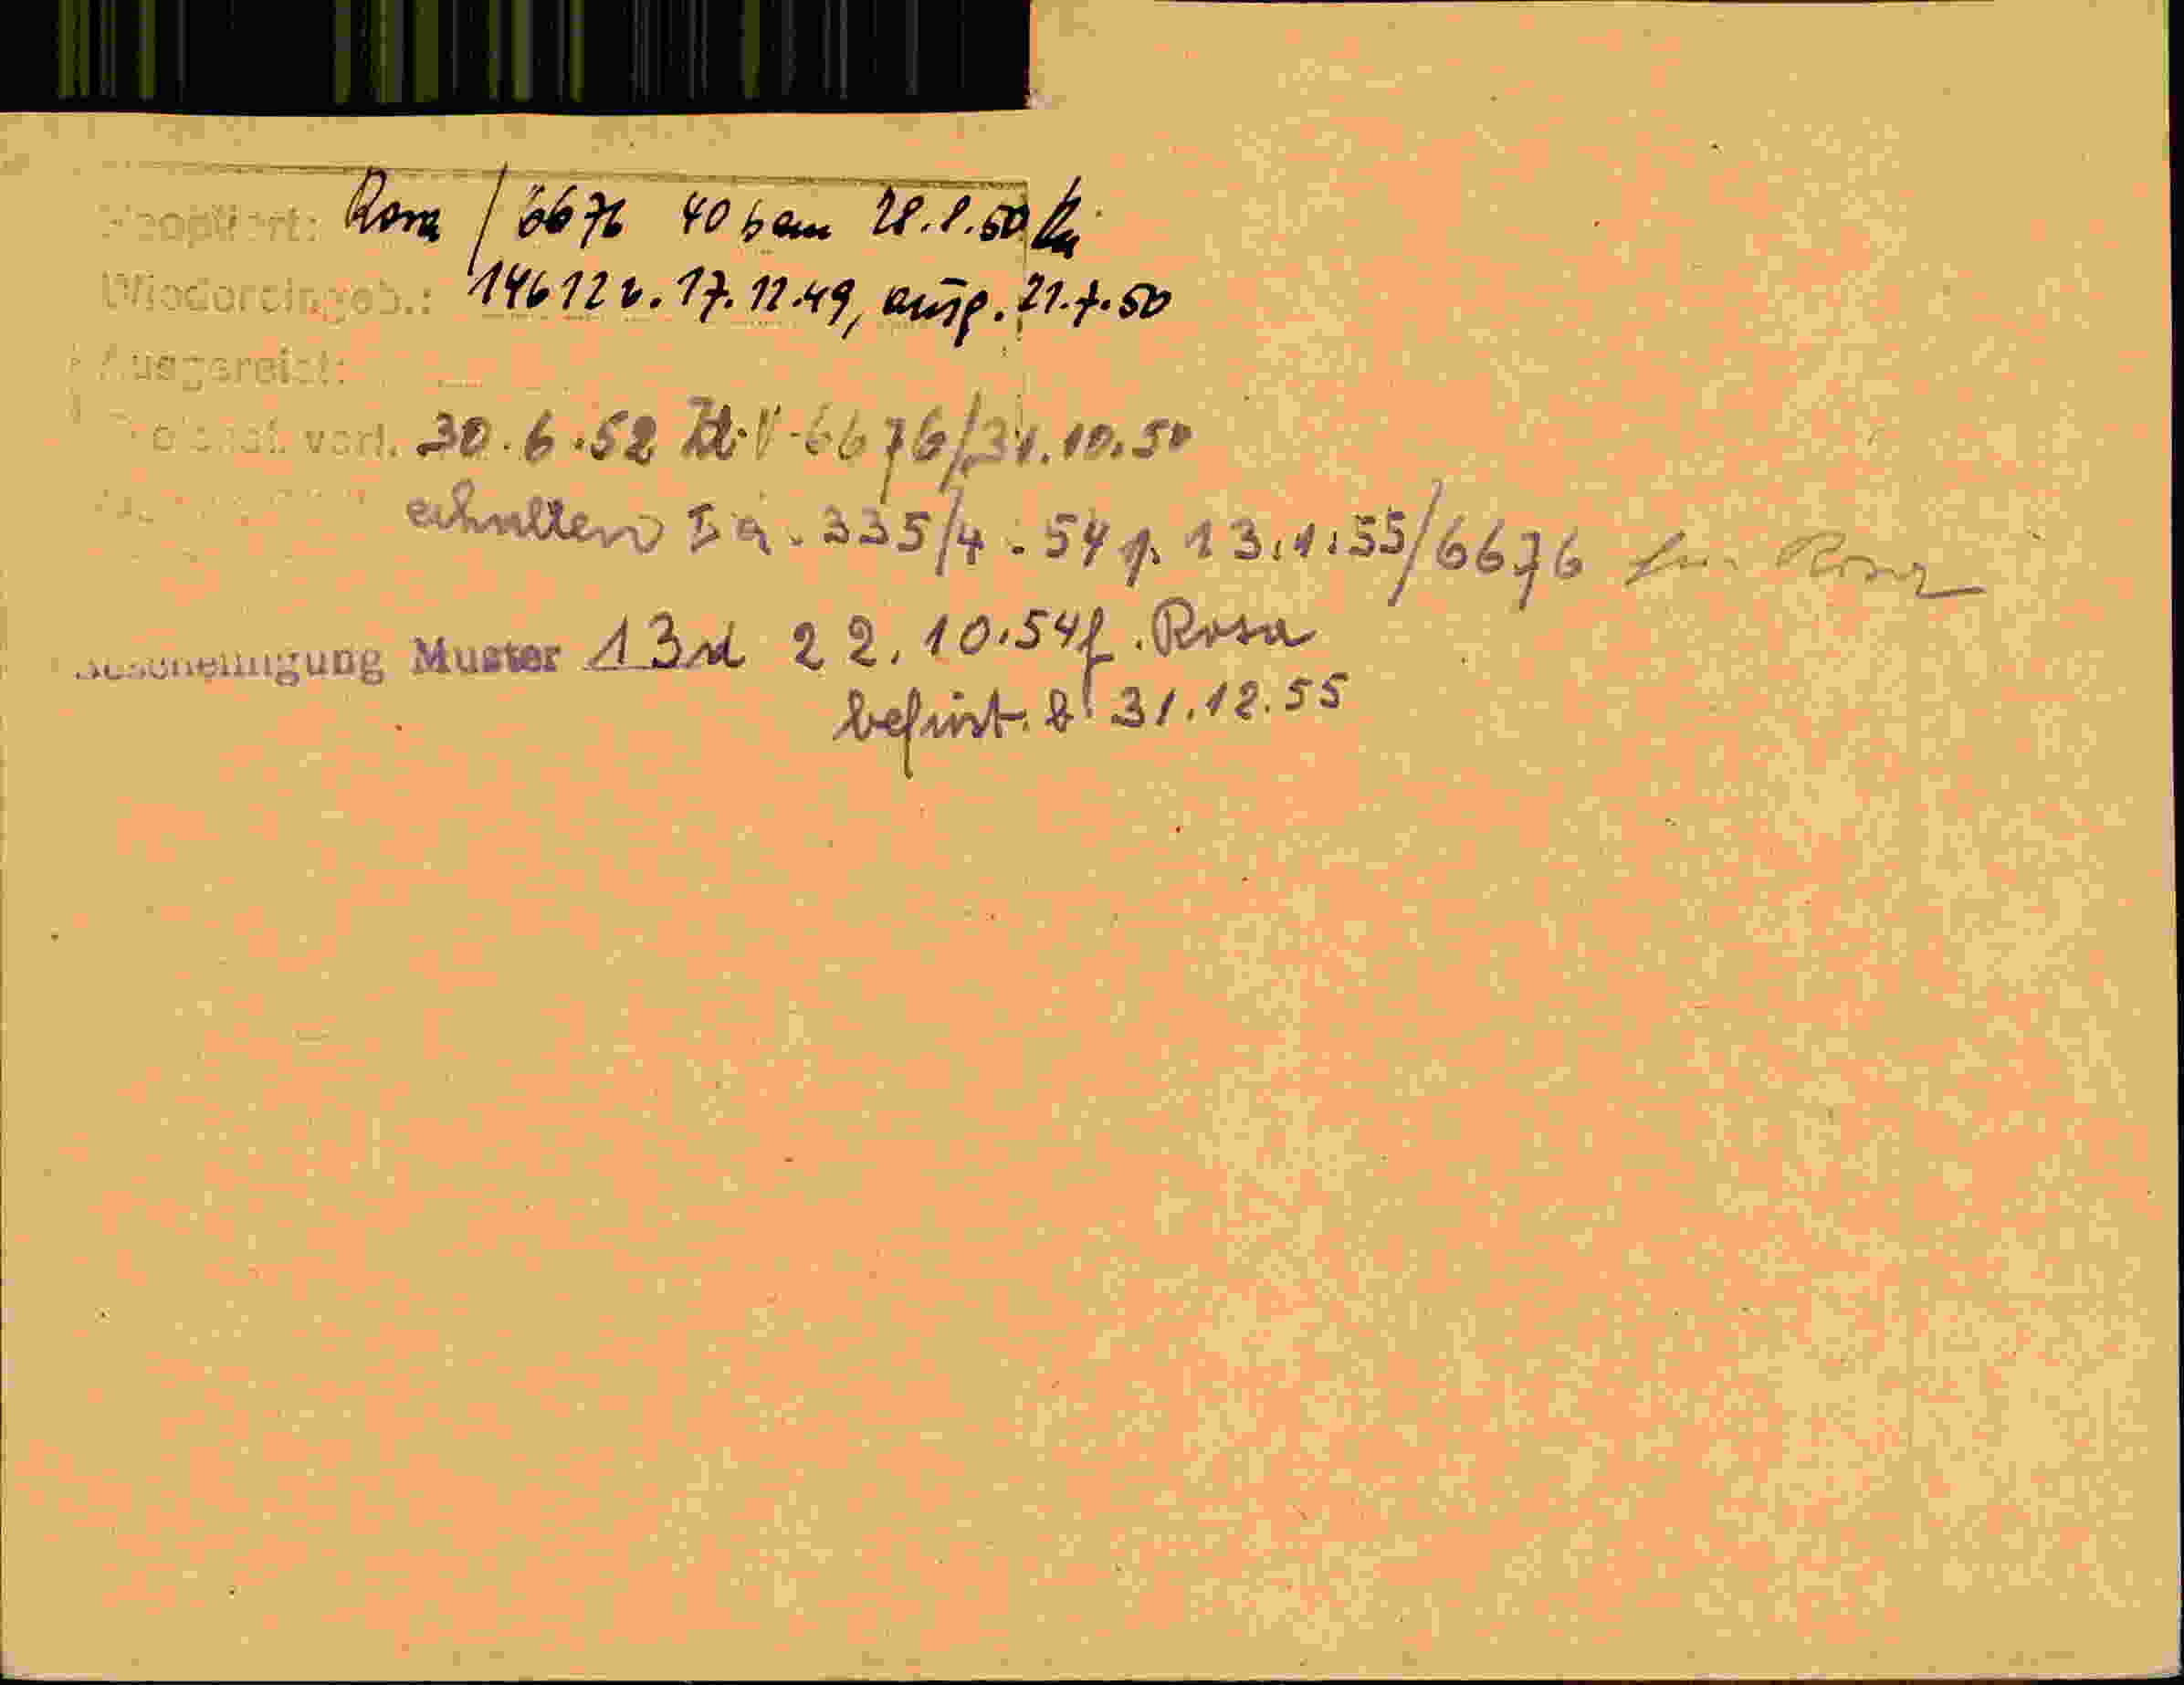 Reoptiert: Rosa / 6676 40 b am 28.8.50
Wiedereingeb.: 14612 v. 17.11.49, ausg. 21.7.50
Ausgereist:
verl. 30.6.52 6676/31.10.50
erhalten 335/4. 54 13.1.55/6676 Rosa
Bescheinigung Muster 13d 22.10.54 f. Rosa
befrist. b. 31.12.55